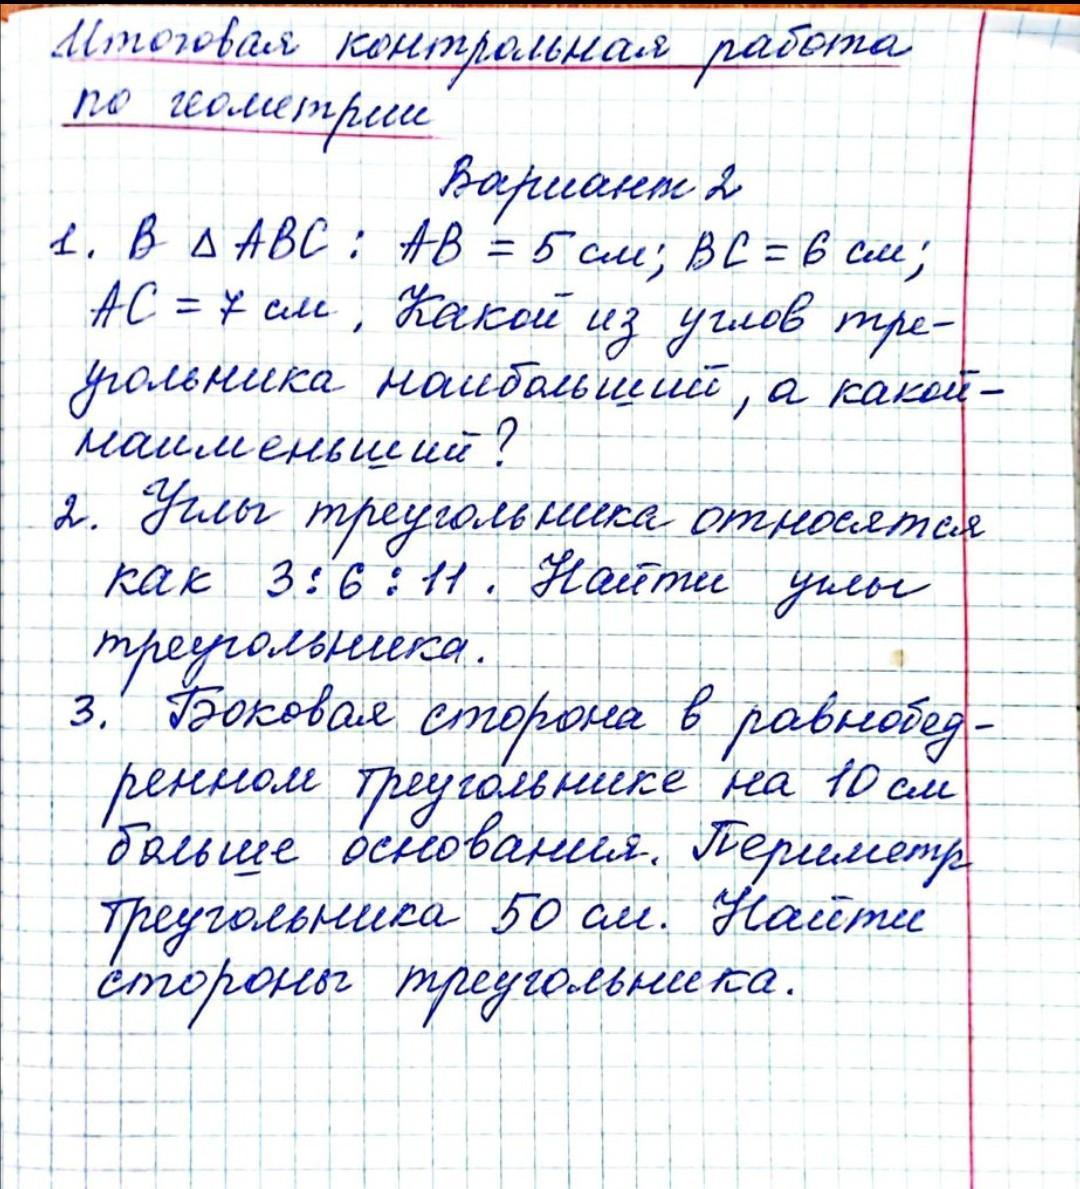 Итоговая контрольная работа
по геометрии
Вариант 2
1. В Δ ABC : AB = 5 см; BC = 6 см;
AC = 7 см. Какой из углов тре-
угольника наибольший, а какой-
наименьший?
2. Углы треугольника относятся
как 3 : 6 : 11. Найти углы
треугольника.
3. Боковая сторона в равнобед-
ренном треугольнике на 10 см
больше основания. Периметр
треугольника 50 см. Найти
стороны треугольника.